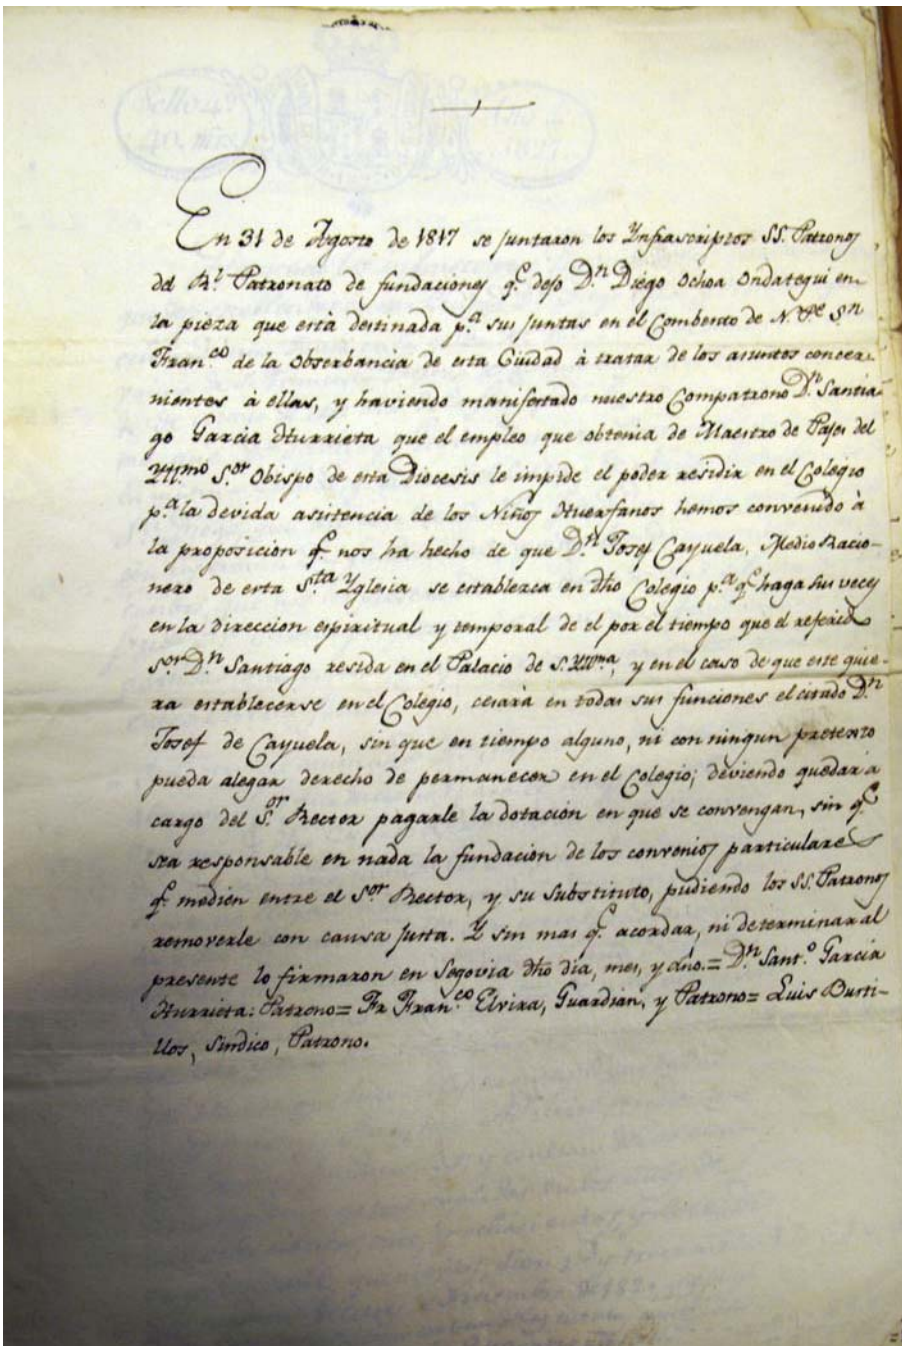 En 31 de Agosto de 1817 se juntaron los Ynfrascriptos SS. Patronos
del Rl. Patronato de fundaciones q.e dejo D.n Diego Ochoa Ondategui en
la pieza que està destinada p.a sus juntas en el Combento de N. Pe S.n
Fran.co de la Obserbancia de esta Ciudad à tratar de los asuntos concer-
nientes à ellas, y haviendo manifestado nuestro Compatrono D.n Santia-
go Garcia Yturrieta que el empleo que obtenia de Maestro de Pajes del
Yll.mo S.or Obispo de esta Diocesis le impide el poder residir en el Colegio
p.a la devida asistencia de los Niños Huerfanos hemos convenido à
la proposicion q.e nos ha hecho de que D.n Josef Cayuela, Medio Racio-
nero de esta S.ta Yglesia se establezca en dho Colegio p.a q.e haga sus veces
en la direccion espiritual y temporal de el por el tiempo que el referido
S.or D.n Santiago resida en el Palacio de S. Yllma, y en el caso de que este quie-
ra establecerse en el Colegio, cesarà en todas sus funciones el citado D.n
Josef de Cayuela, sin que en tiempo alguno, ni con ningun pretexto
pueda alegar derecho de permanecer en el Colegio; deviendo quedar a
cargo del S.or Rector pagarle la dotacion en que se convengan, sin q.e
sea responsable en nada la fundacion de los convenios particulares
q.e medien entre el S.or Rector, y su Substituto, pudiendo los SS. Patronos
removerle con causa justa. Y sin mas q.e acordar, ni determinar al
presente lo firmaron en Segovia dho dia, mes, y año.= D.n Sant.o Garcia
Yturrieta: Patrono= Fr Fran.co Elvira, Guardian, y Patrono= Luis Burti-
llos, Sindico, Patrono.
Sello 4.o
40. mrs